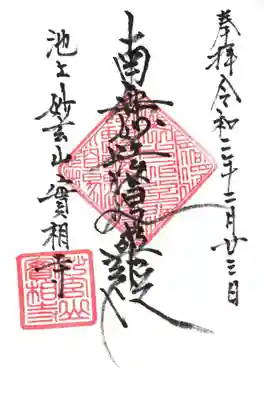 奉拝 令和二年十二月廿三日
南無妙法蓮華経
池上 妙玄山 實相寺